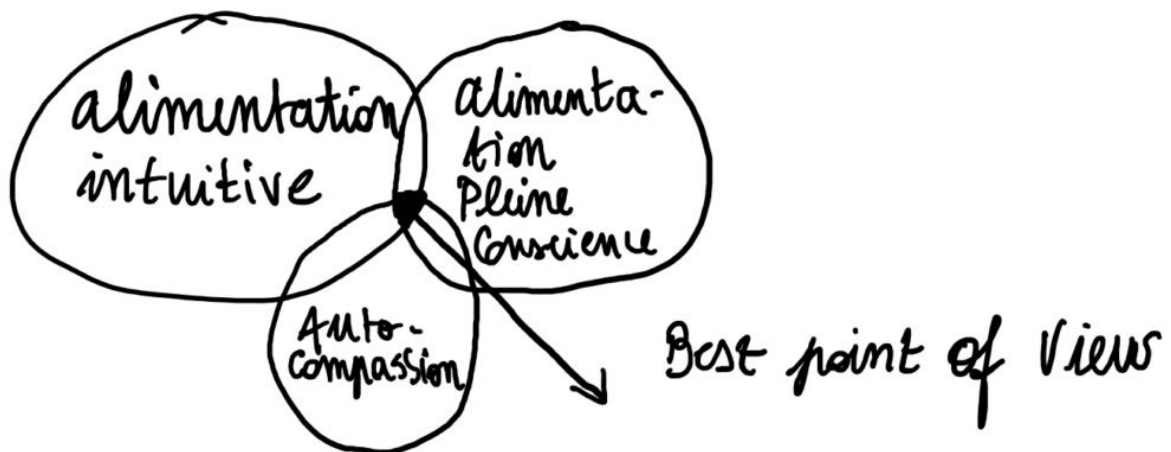 alimentation
intuitive
alimenta-
tion
Pleine
Conscience
Auto-
compassion
Best point of View